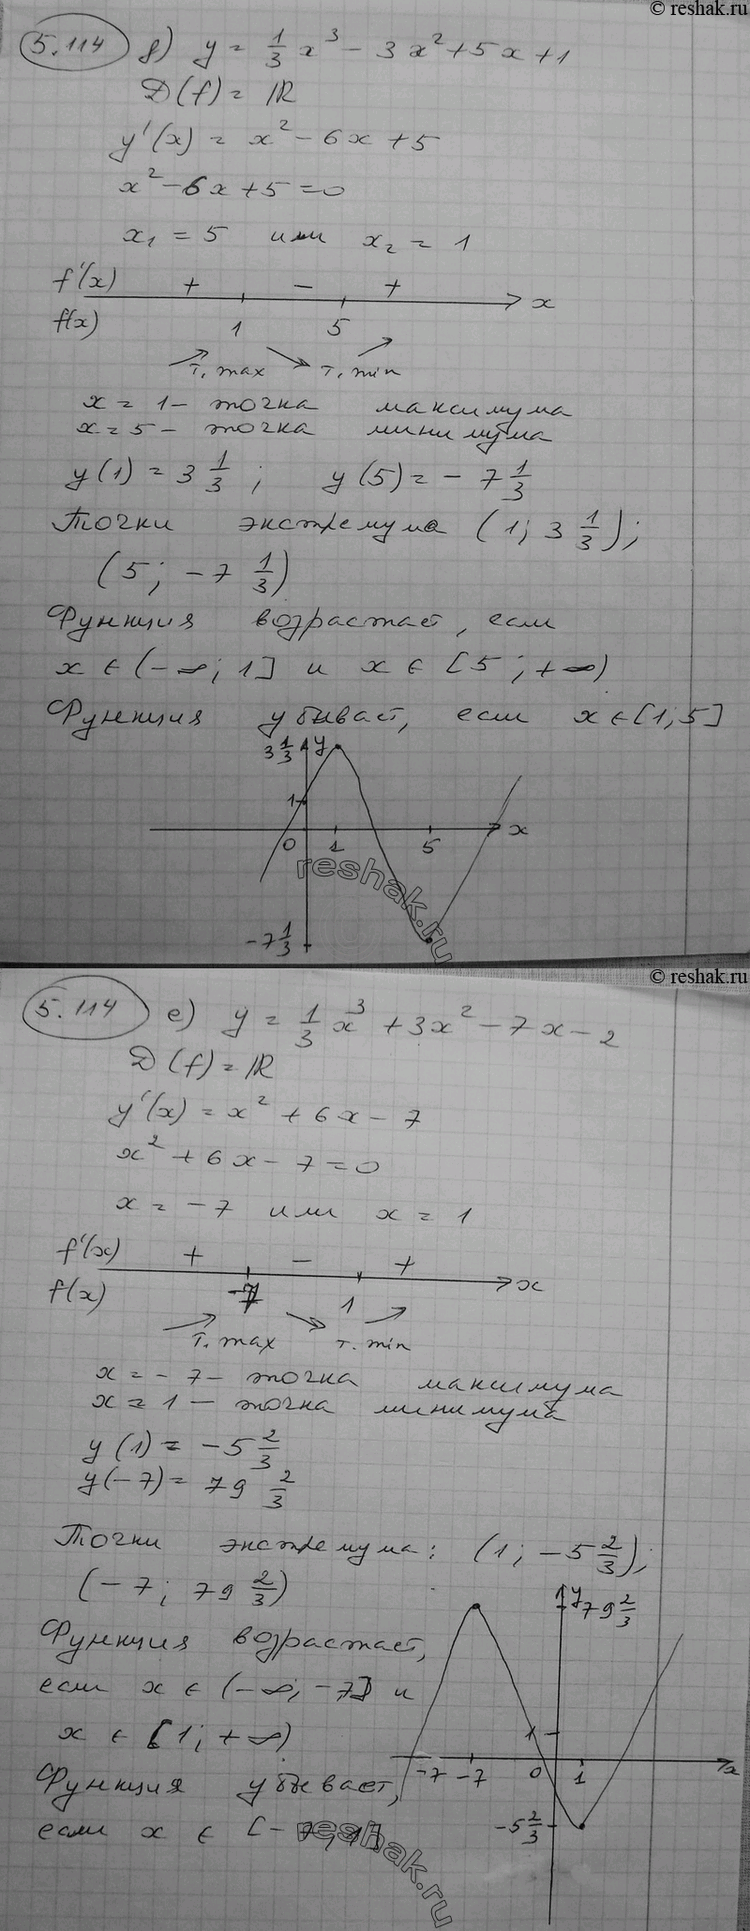 © reshak.ru
5.114 д) y = 1/3 x³ - 3x² + 5x + 1
D(f) = ℝ
y'(x) = x² - 6x + 5
x² - 6x + 5 = 0
x₁ = 5 или x₂ = 1
f'(x) + - + x
f(x) 1 5
т. max т. min
x = 1 - точка максимума
x = 5 - точка минимума
y(1) = 3 1/3; y(5) = - 7 1/3
Точки экстремума (1; 3 1/3);
(5; -7 1/3)
Функция возрастает, если
x ∈ (-∞; 1] и x ∈ [5; +∞)
Функция убывает, если x ∈ [1; 5]
3 1/3 y
1
0 1 5 x
-7 1/3
reshak.ru
© reshak.ru
5.114 е) y = 1/3 x³ + 3x² - 7x - 2
D(f) = ℝ
y'(x) = x² + 6x - 7
x² + 6x - 7 = 0
x = -7 или x = 1
f'(x) + - + x
f(x) -7 1
т. max т. min
x = -7 - точка максимума
x = 1 - точка минимума
y(1) = -5 2/3
y(-7) = 79 2/3
Точки экстремума: (1; -5 2/3);
(-7; 79 2/3)
Функция возрастает,
если x ∈ (-∞; -7] и
x ∈ [1; +∞)
Функция убывает,
если x ∈ [-7; 1]
y 79 2/3
1
-7 -7 0 1 x
-5 2/3
reshak.ru